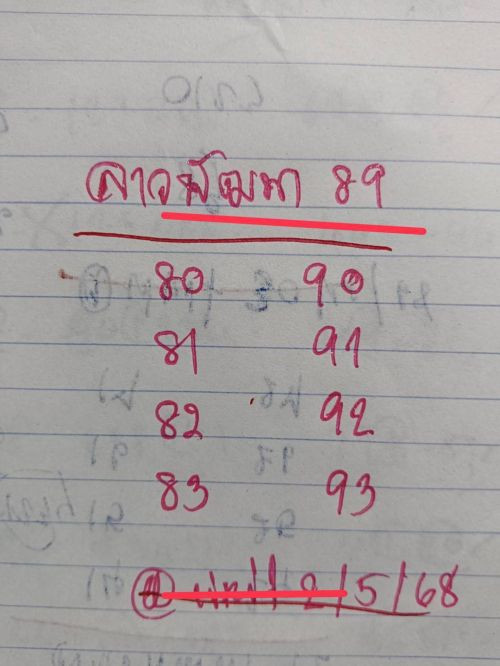 ลาวพัฒนา 89
80 90
81 91
82 92
83 93
2/5/68